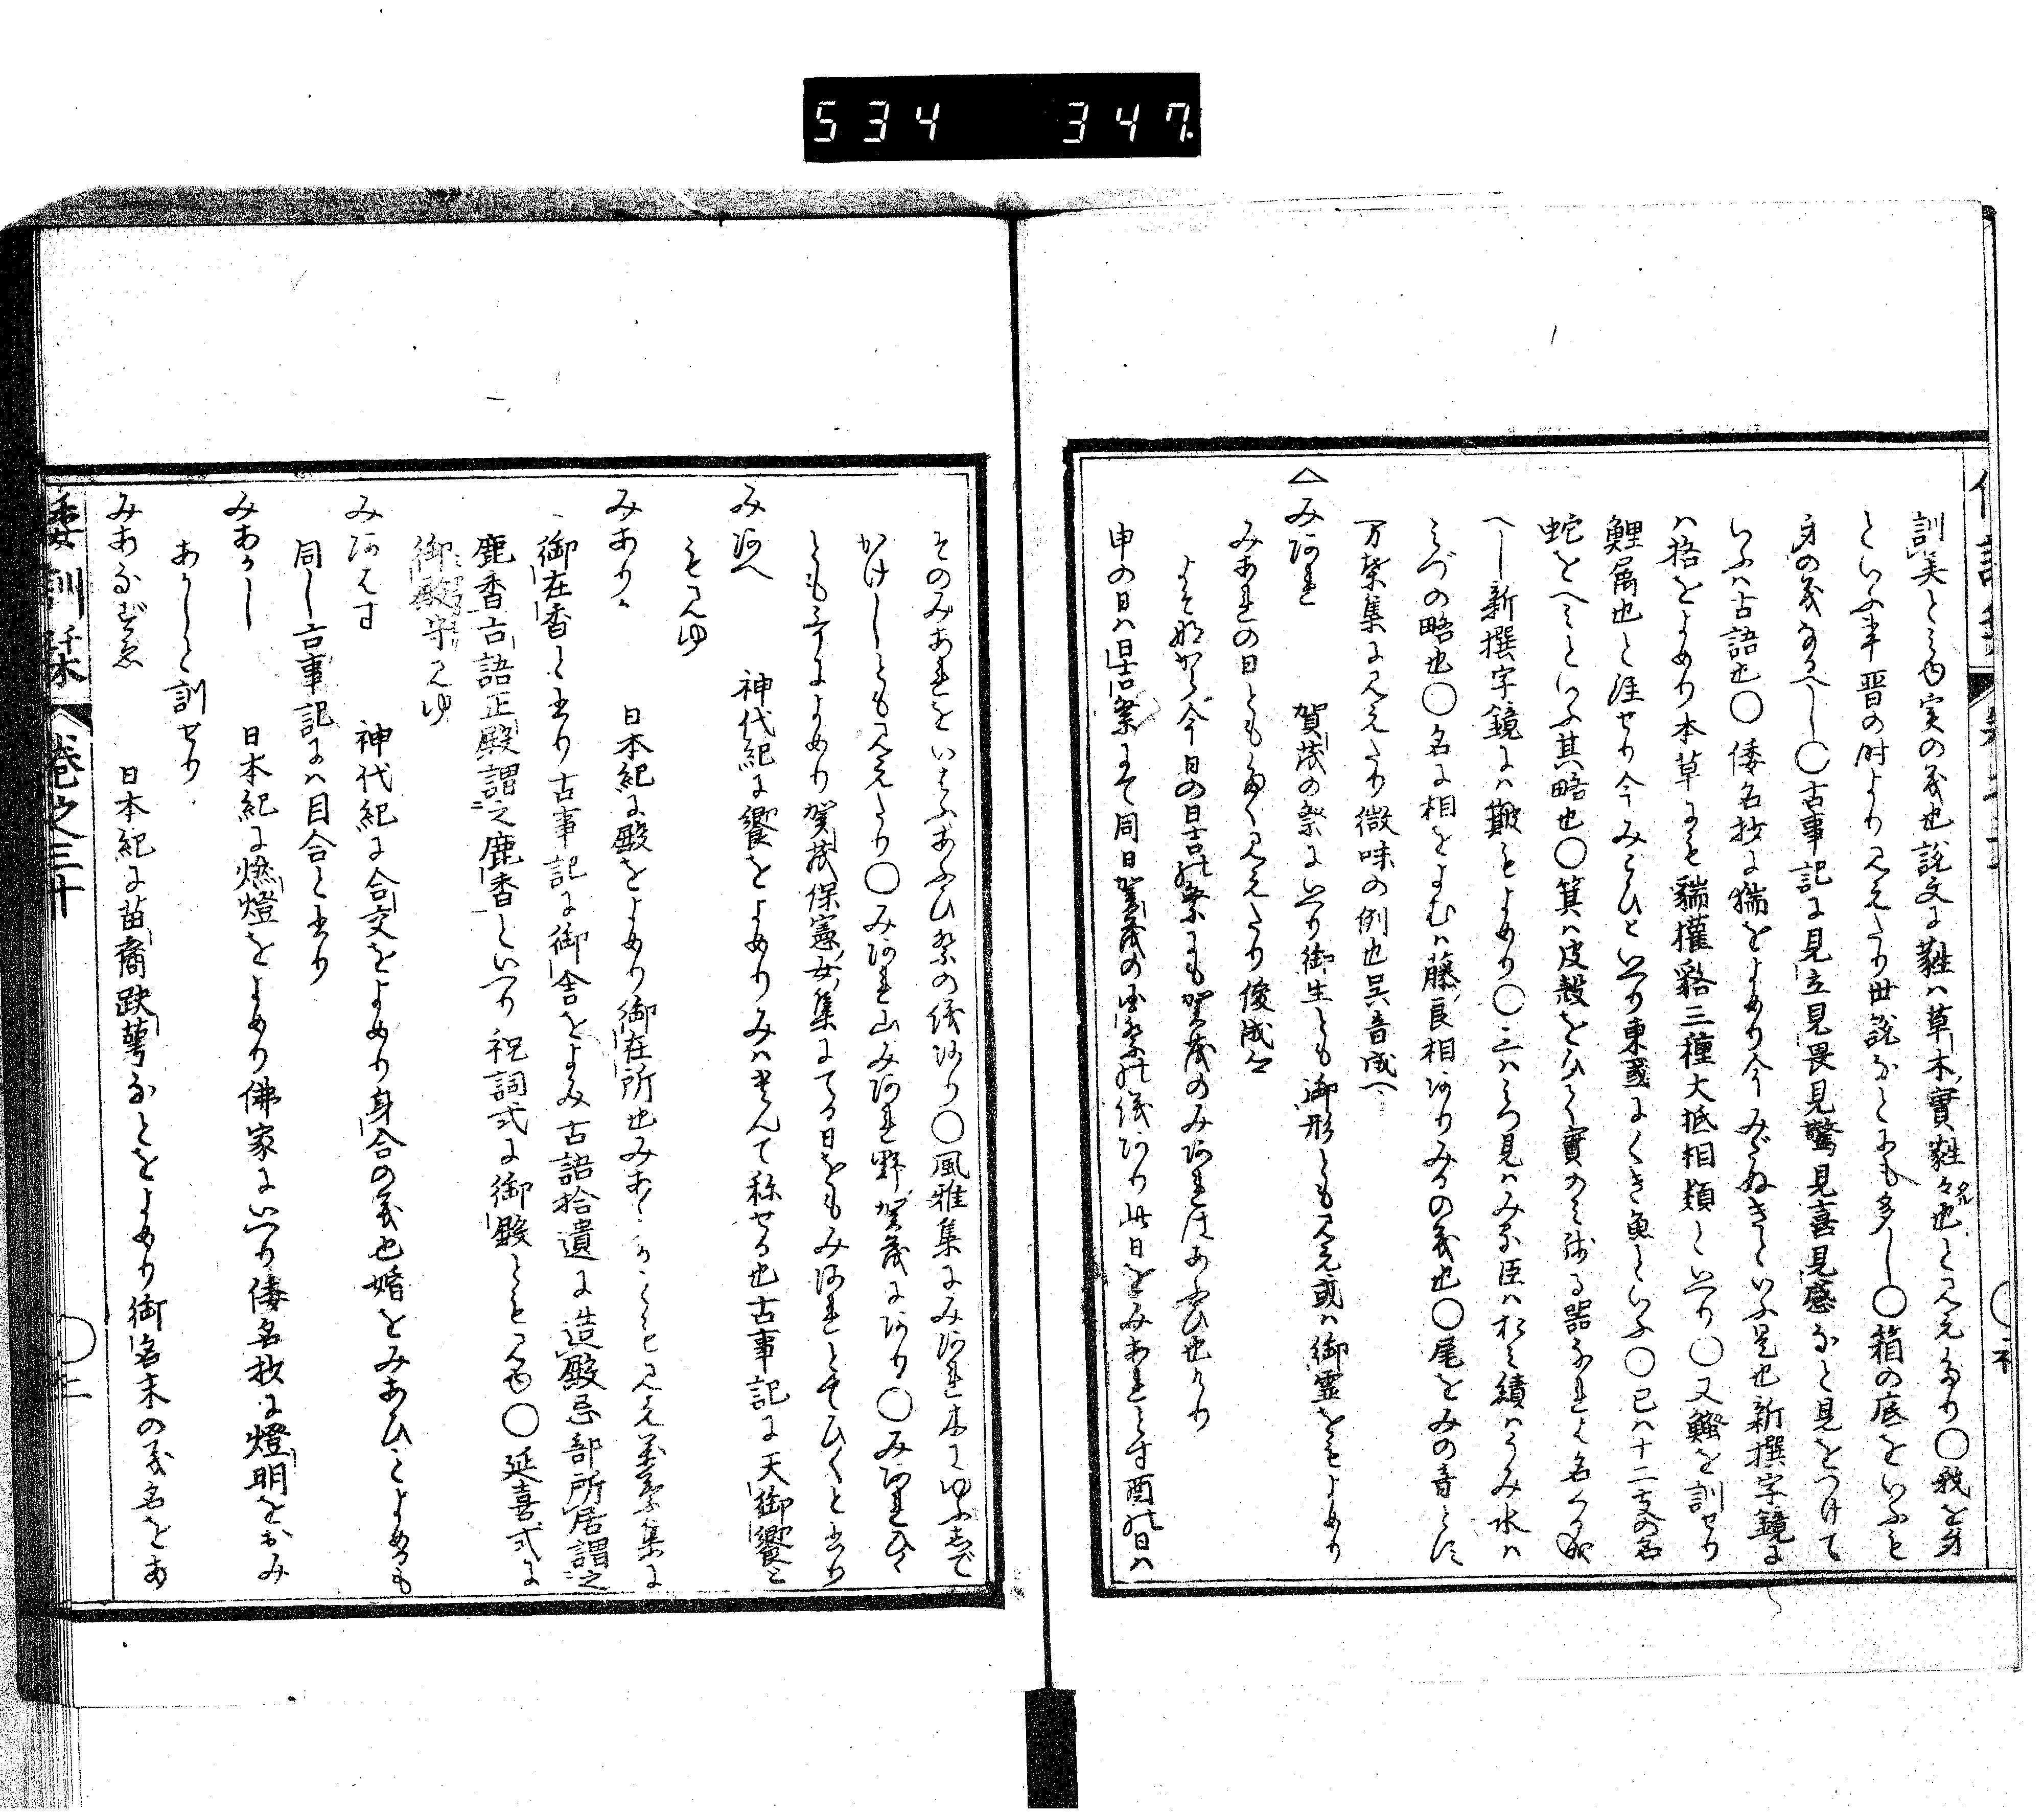 534 347
訓美とミ內実の義也說文に蕤は草木實蕤々也と見えたり〇我を身
といふ半晋の时より見えたり世說なとにも多し〇箱の底をいふも
身の義なるへし〇古事記に見立見畏見驚見喜見感なと見をつけて
いふハ古語也〇倭名抄に猯をよめり今みだぬきといふ是也新撰字鏡に
ハ狢をよめり本草にも猯獾貉三種大抵相類といへり〇又鰠を訓せり
鯉屬也と注せり今みこひといへり東國になくき魚といふ〇巳ハ十二支の名
蛇をへミといふ其略也〇箕ハ皮殻をひて實のミ残る器なれは名くる成
へし新撰字鏡にハ簸もよめり〇三ハミつ見ハみる臣ハおミ績ハうみ水ハ
ミづの略也〇名に相をよむハ藤良相ありみるの義也〇尾をみの音とに
万葉集に見えたり微味の例也呉音成へし
△みあれ 賀茂の祭にいへり御生とも御形とも見え或ハ御霊をもよめり
みあれの日とも多く見えたり俊成卿
よそなから今日の日吉の祭にも賀茂のみあれはあふひ也けり
申の日ハ日吉祭にて同日賀茂の国祭の儀あり此日をみあれとす酉の日ハ
そのみあれをいはふあふひ祭の儀あり〇風雅集にみあれ木にゆふしで
かけしとも見えたり〇みあれ山みあれ野賀茂にあり〇みあれひく
とも哥によめり賀茂保憲女集にてる日をもみあれとてひくと書り
みあへ 神代紀に饗をよめりみハそへて称せる也古事記に天御饗と
も見ゆ
みあらか 日本紀に殿をよめり御在所也みあらかくも見え萬葉集に
御在香と書り古事記に御舎をよみ古語拾遺に造殿忌部所居謂之
鹿香古語正殿謂之鹿香といへり祝詞式に御殿とも見ゆ〇延喜式に
御殿守見ゆ
みあはす 神代紀に合交をよめり身合の義也婚をみあひとよめるも
同し古事記にハ目合と書り
みあかし 日本紀に燃燈をよめり佛家にいへり倭名抄に燈明をおみ
あかしと訓せり
みあなずゑ 日本紀に苗裔趺萼なとをよめり御名末の義名をあ
倭訓栞 卷之三十 〇二